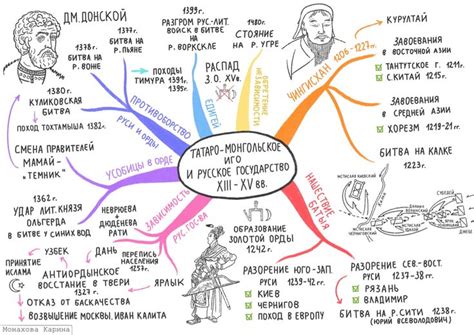 ДМ. ДОНСКОЙ
1377г.
БИТВА НА
Р. ПЬЯНЕ
1378г.
БИТВА НА
Р. ВОЖЕ
1380г.
КУЛИКОВСКАЯ
БИТВА
ПОХОД ТОХТАМЫША 1382г.
СМЕНА ПРАВИТЕЛЕЙ
МАМАЙ -
"ТЕМНИК"
1362г.
УДАР ЛИТ. КНЯЗЯ
ОЛЬГЕРДА
В БИТВЕ У СИНИХ ВОД
ПРОТИВОБОРСТВО
РУСИ И ОРДЫ
ПОХОДЫ
ТИМУРА 1391г.
1395г.
УСОБИЦЫ В ОРДЕ
1399г.
РАЗГРОМ РУС-ЛИТ.
ВОЙСК В БИТВЕ
НА ВОРКСКЛЕ
ЕДИГЕЙ
1480г.
СТОЯНИЕ
НА Р. УГРЕ
РАСПАД
З.О. XVв.
ОБРЕТЕНИЕ
НЕЗАВИСИМОСТИ
ТАТАРО-МОНГОЛЬСКОЕ
ИГО
И РУССКОЕ ГОСУДАРСТВО
XIII - XV ВВ.
ЧИНГИСХАН
1206-1227гг.
КУРУЛТАЙ
ЗАВОЕВАНИЯ
В ВОСТОЧНОЙ АЗИИ
ТАНГУТСКОЕ Г. 1211г.
С.КИТАЙ 1215г.
ЗАВОЕВАНИЯ
В СРЕДНЕЙ АЗИИ
ХОРЕЗМ 1219-21гг.
БИТВА НА КАЛКЕ
1223г.
НАШЕСТВИЕ
БАТЫЯ
РАЗОРЕНИЕ СЕВ.-ВОСТ.
РУСИ 1237-38гг.
РЯЗАНЬ
ВЛАДИМИР
БИТВА НА Р.СИТИ 1238г.
(ЮРИЙ ВСЕВОЛОДОВИЧ)
РАЗОРЕНИЕ ЮГО-ЗАП.
РУСИ 1239-42гг.
КИЕВ
ЧЕРНИГОВ
ПОХОД В ЕВРОПУ
ОБРАЗОВАНИЕ
ЗОЛОТОЙ ОРДЫ
1242г.
ЗАВИСИМОСТЬ
РУС. ГОС-ВА
НЕВРЮЕВА
И
ДЮДЕНЁВА
РАТИ
ДАНЬ
ПЕРЕПИСЬ
НАСЕЛЕНИЯ
1257г.
УЗБЕК
ПРИНЯТИЕ
ИСЛАМА
АНТИОРДЫНСКОЕ
ВОССТАНИЕ В ТВЕРИ
1327г.
ЯРЛЫК
ОТКАЗ ОТ БАСКАЧЕСТВА
ВОЗВЫШЕНИЕ МОСКВЫ, ИВАН КАЛИТА
Монахова Карина